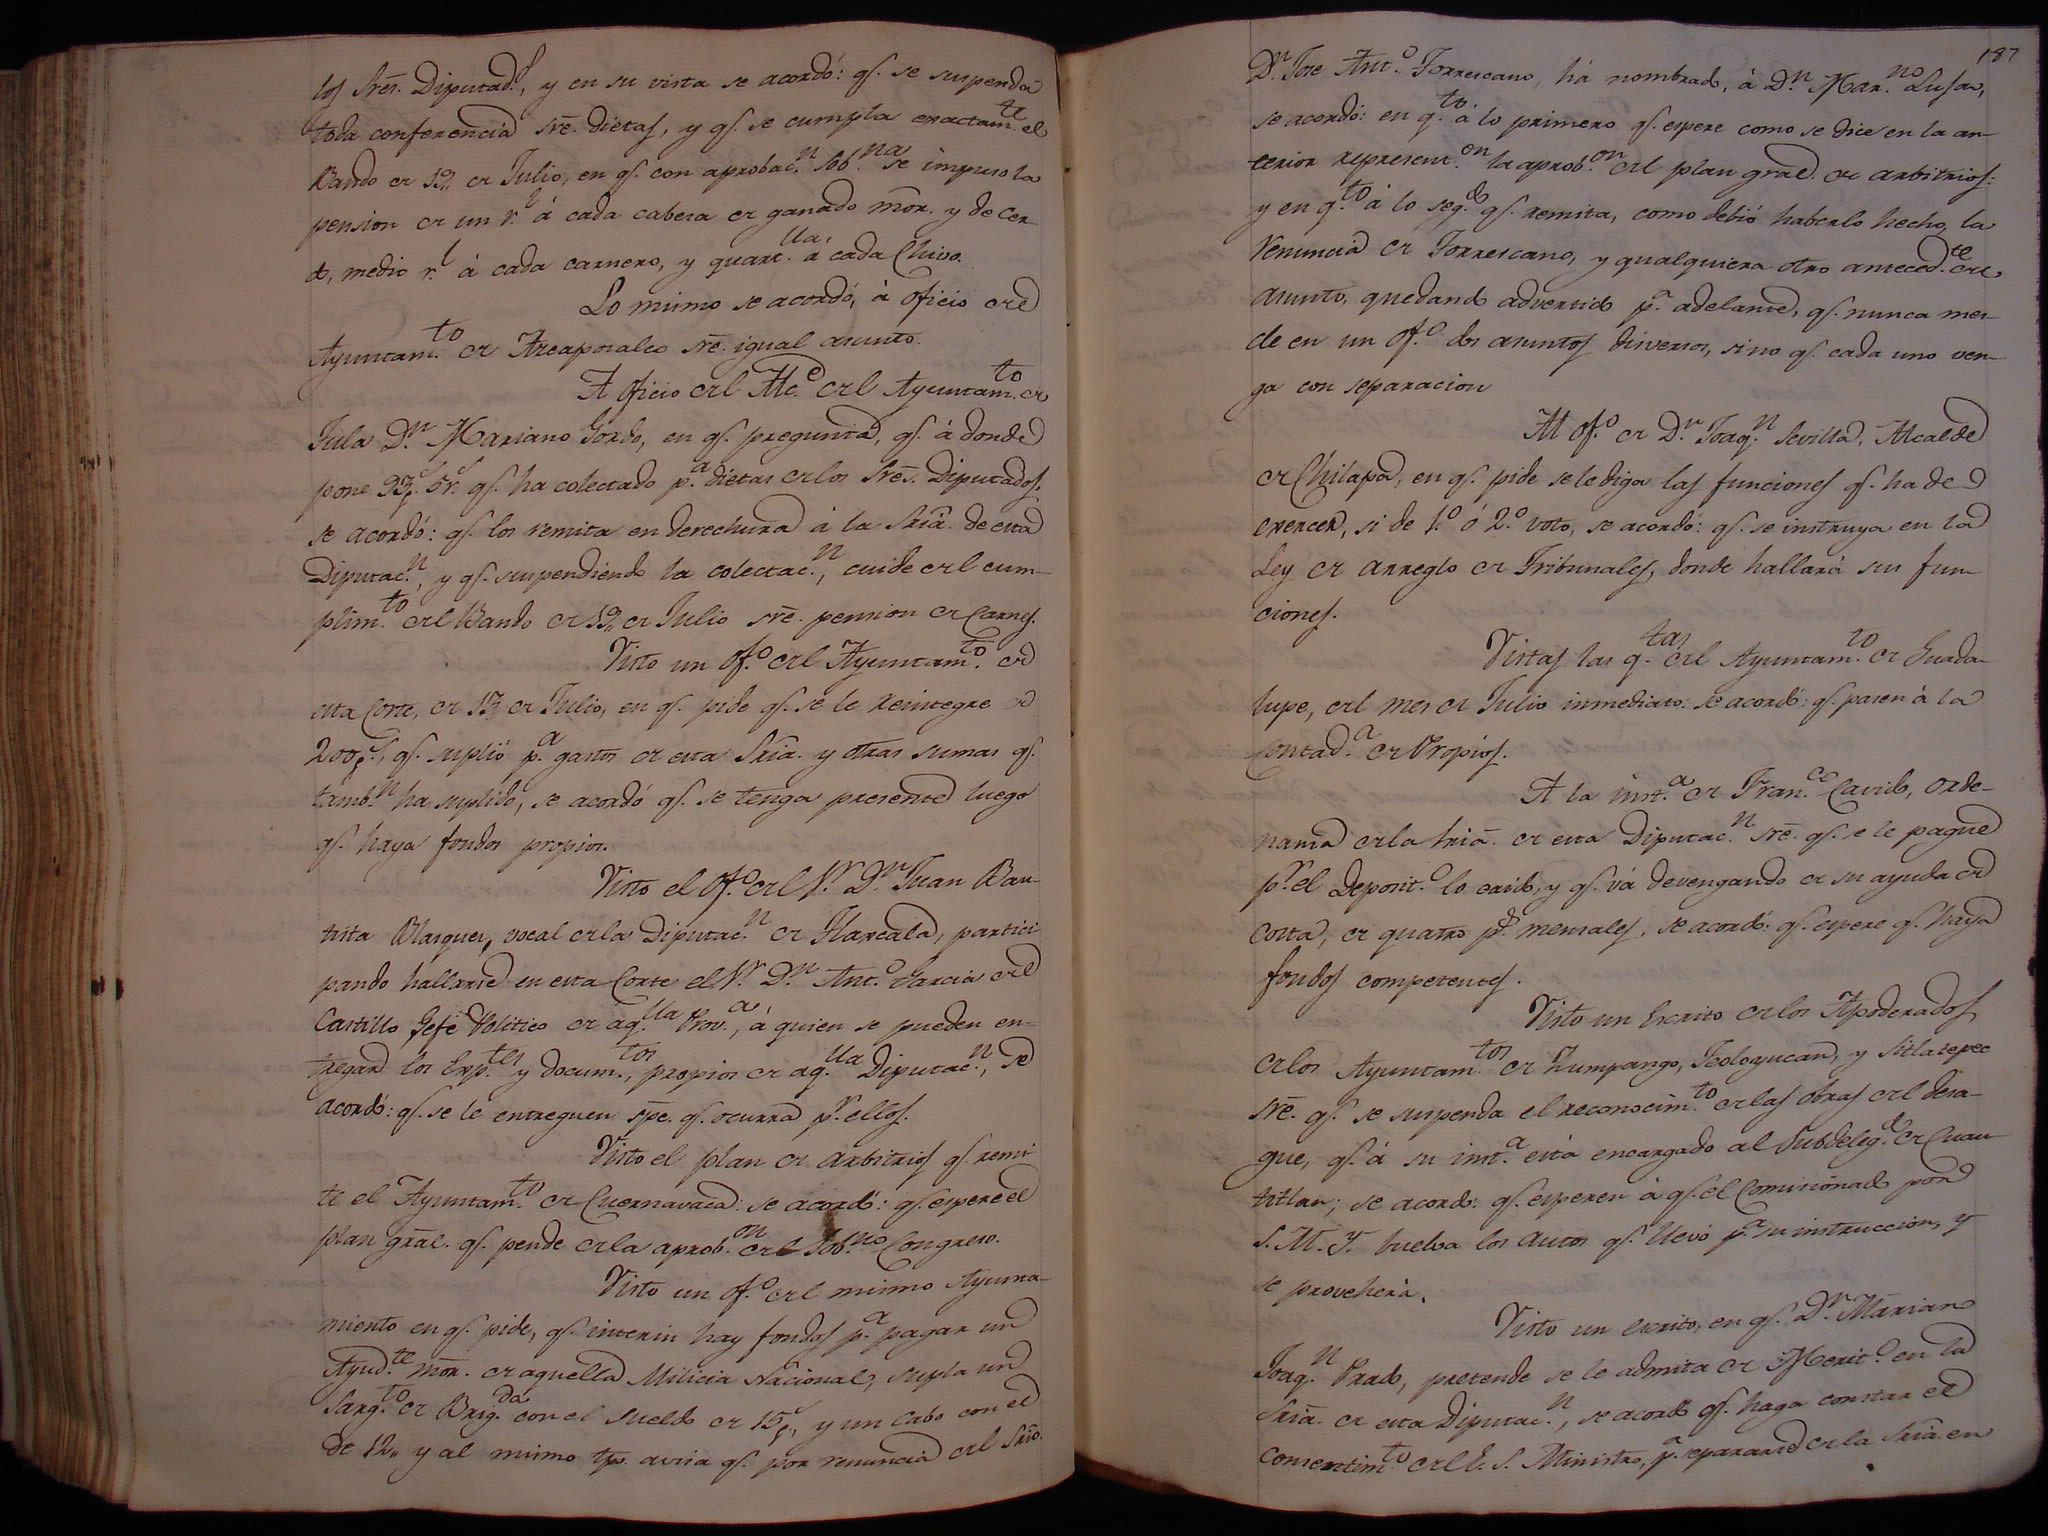 los Sres. Diputad.s, y en su vista se acordó: qe. se suspenda
toda conferencia sre. dietas, y qe. se cumpla exactam.te el
Bando de 19 de Julio, en qe. con aprobac.n Sob.na se impuso la
pension de un r.l á cada cabesa de ganado mor. y de Cer-
do, medio r.l á cada carnero, y quart.lla á cada Chivo.
Lo mismo se acordó, à oficio del
Ayuntam.to de Azcapozalco sre. igual asunto.
A oficio del Alc.e del Ayuntam.to de
Tula D.n Mariano Gordo, en qe. pregunta, qe. á donde
pone 93p.s 5r.s qe. ha colectado p.a dietas de los Sres. Diputados,
se acordó: qe. los remita en derechura á la Sria. de esta
Diputac.n, y qe. suspendiendo la colectac.n, cuide del cum-
plim.to del Bando de 19 de Julio sre. pension de Carnes.
Visto un of.o del Ayuntam.to de
esta Corte, de 13 de Julio, en qe. pide qe. se le reintegre de
200p.s, qe. suplió p.a gastos de esta Sria. y otras sumas qe.
tamb.n ha suplido, se acordó qe. se tenga presente luego
qe. haya fondos propios.
Visto el of.o del Sr. D.n Juan Bau-
tista Blasques, vocal de la Diputac.n de Tlaxcala, partici
pando hallarse en esta Corte el Sr. D.n Ant.o Garcia del
Castillo Gefe Politico de aq.lla Prov.a, á quien se pueden en-
tregar los Exp.tes y docum.tos, propios de aq.lla Diputac.n, se
acordó: qe. se le entreguen spe. qe. ocurra pr. ellos.
Visto el plan de arbitrios qe. remi
te el Ayuntam.to de Cuernavaca: se acordó: qe. espere el
plan gral. qe. pende de la aprob.on del Sob.no Congreso.
Visto un of.o del mismo Ayunta-
miento en qe. pide, qe. interin hay fondos p.a pagar un
Ayud.te mor. de aquella Milicia Nacional, supla un
Sarg.to de Brig.da con el sueldo de 15p.s, y un Cabo con el
de 12,, y al mismo tpo. avisa qe. por renuncia del Srio.
187
D.n Jose Ant.o Torrescano, há nombrado, à D.n Mar.no Lusa,
se acordó: en q.to á lo primero qe. espere como se dice en la an-
terior represent.on la aprob.on del plan gral. de arbitrios:
y en q.to á lo seg.do qe. remita, como debió haberlo hecho, la
renuncia de Torrescano, y qualquiera otro anteced.te del
asunto, quedando advertido p.a adelante, qe. nunca mes-
cle en un of.o dos asuntos diversos, sino qe. cada uno ven-
ga con separacion
Al of.o de D.n Joaq.n Sevilla, Alcalde
de Chilapa, en qe. pide se le diga las funciones qe. ha de
exercer, si de 1.o ó 2.o voto, se acordó: qe. se instruya en la
Ley de arreglo de Tribunales, donde hallará sus fun-
ciones.
Vistas las q.tas del Ayuntam.to de Guada-
lupe, del mes de Julio inmediato: se acordó: qe. pasen à la
Contad.a de Propios.
A la inst.a de Fran.co Cavido, orde-
nanza de la Sria. de esta Diputac.n sre. qe. se le pague
pr. el Deposit.o lo caido, y qe. vá devengando de su ayuda de
costa, de quatro ps. mensales, se acordó: qe. espere qe. haya
fondos competentes.
Visto un Escrito de los Apoderados
de los Ayuntam.tos de Zumpango, Teoloyucan, y Sitlatepec
sre. qe. se suspenda el reconocim.to de las obras del desa-
gue, qe. á su inst.a está encargado al Subdeleg.do de Cuau
titlan; se acordó: qe. esperen à qe. el Comisionado por
S. M. Y. buelva los autos qe. llevó p.a su instruccion, y
se proveherá.
Visto un escrito, en qe. D.n Mariano
Joaq.n Prado, pretende se le admita de Merit.o en la
Sria. de esta Diputac.n, se acordó qe. haga constar el
consentim.to del E. S. Ministro, p.a separarse de la Sria. en